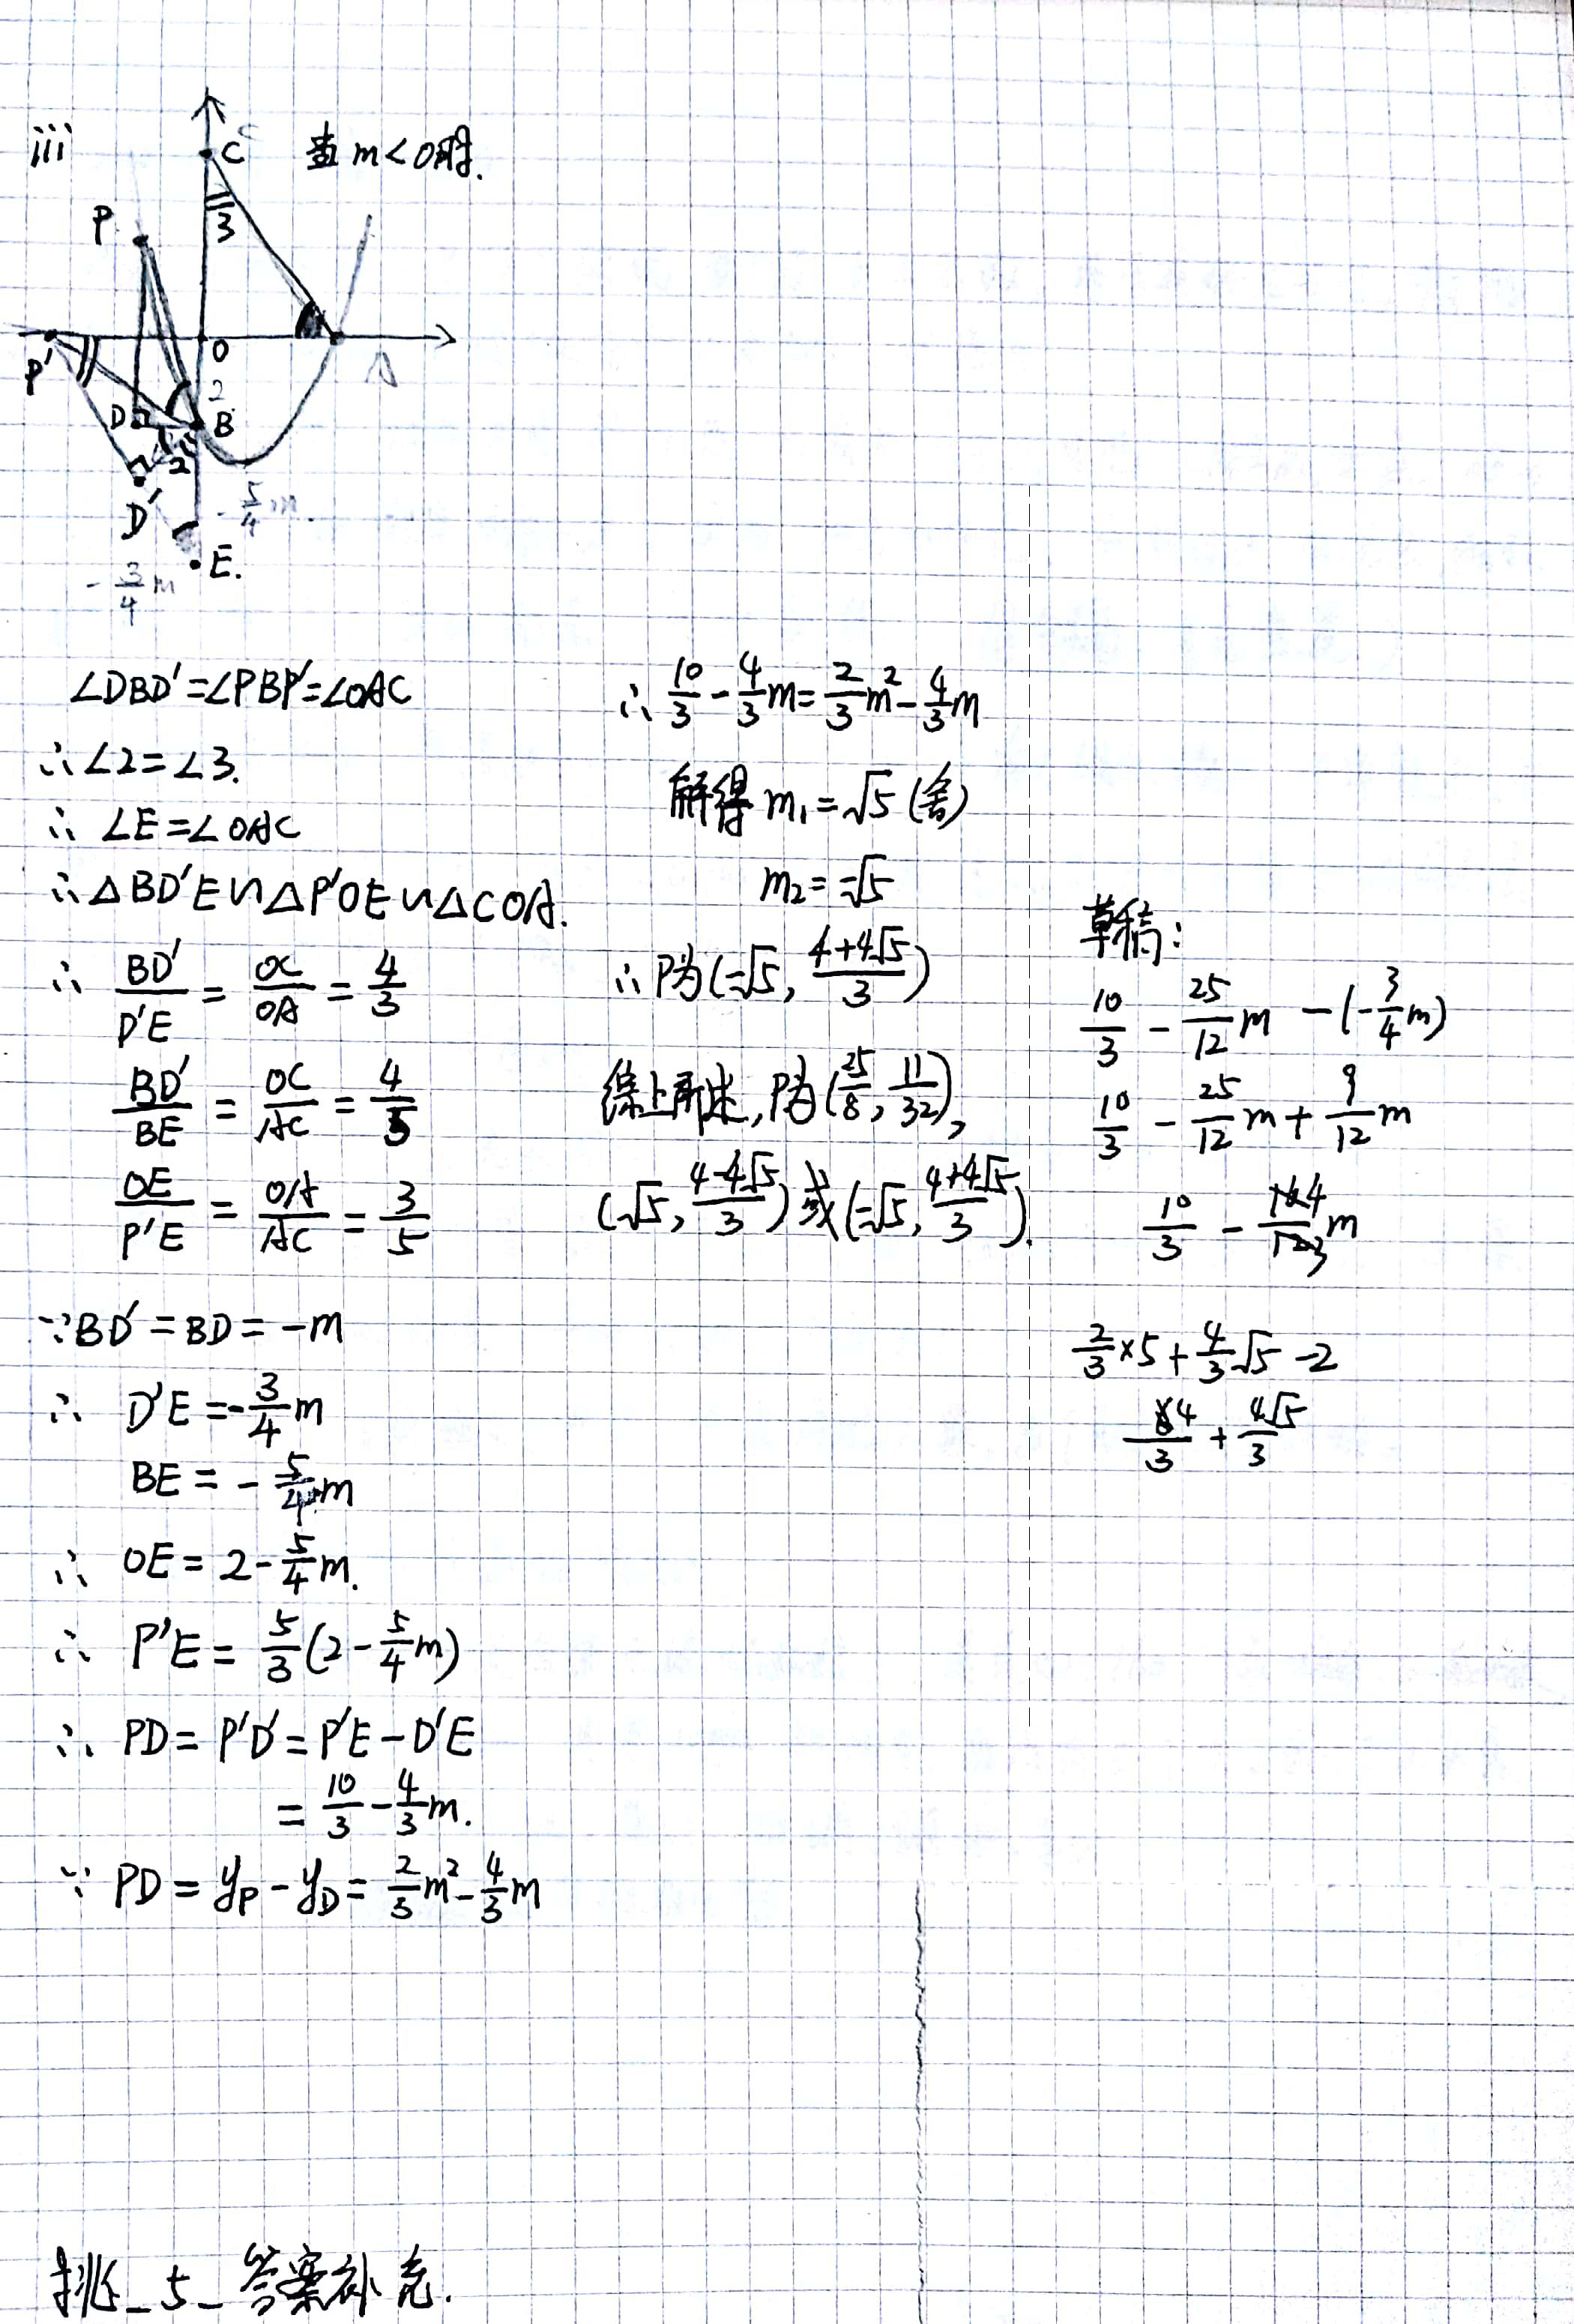 iii
当 m<0时.
C
3
P
O
A
P'
2
D
B
2
D'
-5/4 m
E.
-3/4 m
∠DBD'=∠PBP'=∠OAC
∴∠2=∠3.
∴ ∠E=∠OAC
∴△BD'E∽△P'OE∽△COA.
∴ BD'/D'E = OC/OA = 4/3
BD'/BE = OC/AC = 4/5
OE/P'E = OA/AC = 3/5
∵BD'=BD=-m
∴ D'E=-3/4 m
BE=-5/4 m
∴ OE=2-5/4 m.
∴ P'E=5/3(2-5/4 m)
∴ PD=P'D'=P'E-D'E
=10/3-4/3 m.
∵ PD=y_P-y_D=2/3 m²-4/3 m
∴ 10/3-4/3 m=2/3 m²-4/3 m
解得 m₁=√5 (舍)
m₂=-√5
∴P为(-√5, (4+4√5)/3)
综上所述,P为(25/8, 11/32),
(√5, (4-4√5)/3)或(-√5, (4+4√5)/3).
草稿:
10/3 - 25/12 m -(-3/4 m)
10/3 - 25/12 m + 9/12 m
10/3 - 4/3 m
2/3×5+4/3√5-2
4/3+4√5/3
挑_5_答案补充.